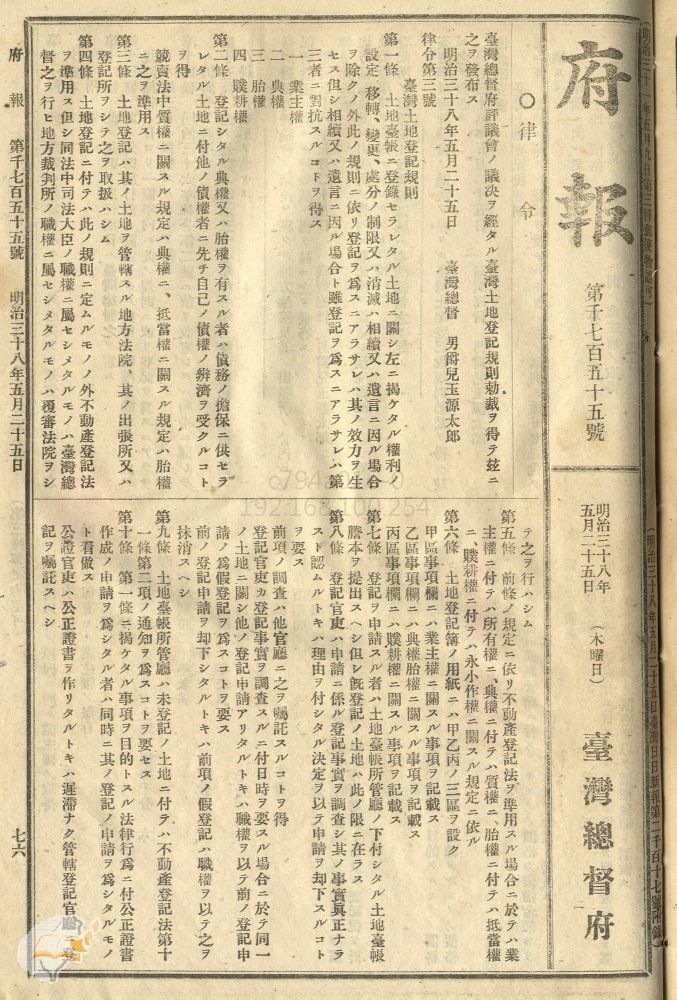 府報
第千七百五十五號
明治三十八年
五月二十五日
（木曜日）
臺灣總督府
○律令
臺灣總督府評議會ノ議決ヲ經タル臺灣土地登記規則勅裁ヲ得テ玆ニ
之ヲ發布ス
明治三十八年五月二十五日　臺灣總督　男爵兒玉源太郎
律令第三號
臺灣土地登記規則
第一條　土地臺帳ニ登錄セラレタル土地ニ關シ左ニ揭ケタル權利ノ
設定、移轉、變更、處分ノ制限又ハ消滅ハ相續又ハ遺言ニ因ル場合
ヲ除クノ外此ノ規則ニ依リ登記ヲ爲スニアラサレハ其ノ效力ヲ生
セス但シ相續又ハ遺言ニ因ル場合ト雖登記ヲ爲スニアラサレハ第
三者ニ對抗スルコトヲ得ス
一　業主權
二　典權
三　胎權
四　贌耕權
第二條　登記シタル典權又ハ胎權ヲ有スル者ハ債務ノ擔保ニ供セラ
レタル土地ニ付他ノ債權者ニ先チ自己ノ債權ノ辨濟ヲ受クルコト
ヲ得
競賣法中質權ニ關スル規定ハ典權ニ、抵當權ニ關スル規定ハ胎權
ニ之ヲ準用ス
第三條　土地登記ハ其ノ土地ヲ管轄スル地方法院、其ノ出張所又ハ
登記所ヲシテ之ヲ取扱ハシム
第四條　土地登記ニ付テハ此ノ規則ニ定ムルモノノ外不動產登記法
ヲ準用ス但シ同法中司法大臣ノ職權ニ屬セシメタルモノハ臺灣總
督之ヲ行ヒ地方裁判所ノ職權ニ屬セシメタルモノハ覆審法院ヲシ
テ之ヲ行ハシム
第五條　前條ノ規定ニ依リ不動產登記法ヲ準用スル場合ニ於テハ業
主權ニ付テハ所有權ニ、典權ニ付テハ質權ニ、胎權ニ付テハ抵當權
ニ、贌耕權ニ付テハ永小作權ニ關スル規定ニ依ル
第六條　土地登記簿ノ用紙ニハ甲乙丙ノ三區ヲ設ク
甲區事項欄ニハ業主權ニ關スル事項ヲ記載ス
乙區事項欄ニハ典權胎權ニ關スル事項ヲ記載ス
丙區事項欄ニハ贌耕權ニ關スル事項ヲ記載ス
第七條　登記ヲ申請スル者ハ土地臺帳所管廳ノ下付シタル土地臺帳
謄本ヲ提出スヘシ但シ旣登記ノ土地ハ此ノ限ニ在ラス
第八條　登記官吏ハ申請ニ係ル登記事實ヲ調查シ其ノ事實眞正ナラ
スト認ムルトキハ理由ヲ付シタル決定ヲ以テ申請ヲ却下スルコト
ヲ要ス
前項ノ調查ハ他官廳ニ之ヲ囑託スルコトヲ得
登記官吏カ登記事實ヲ調查スルニ付日時ヲ要スル場合ニ於テ同一
ノ土地ニ關シ他ノ登記申請アリタルトキハ職權ヲ以テ前ノ登記申
請ノ爲假登記ヲ爲スコトヲ要ス
前ノ登記申請ヲ却下シタルトキハ前項ノ假登記ハ職權ヲ以テ之ヲ
抹消スヘシ
第九條　土地臺帳所管廳ハ未登記ノ土地ニ付テハ不動產登記法第十
一條第二項ノ通知ヲ爲スコトヲ要セス
第十條　第一條ニ揭ケタル事項ヲ目的トスル法律行爲ニ付公正證書
作成ノ申請ヲ爲シタル者ハ同時ニ其ノ登記ノ申請ヲ爲シタルモノ
ト看做ス
公證官吏ハ公正證書ヲ作リタルトキハ遲滯ナク管轄登記官廳ニ登
記ヲ囑託スヘシ
府報　第千七百五十五號　明治三十八年五月二十五日
七六